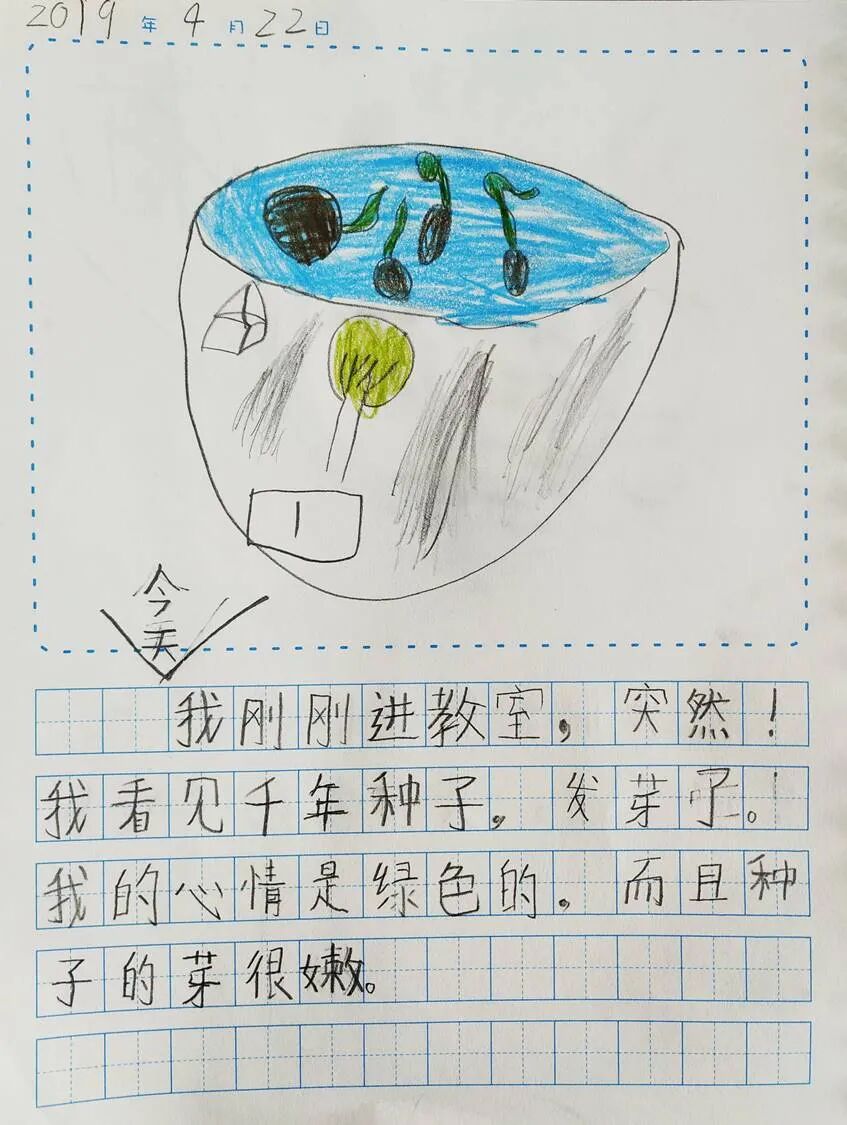 2019年4月22日
今天
我刚刚进教室，突然！
我看见千年种子，发芽了。
我的心情是绿色的。而且种
子的芽很嫩。